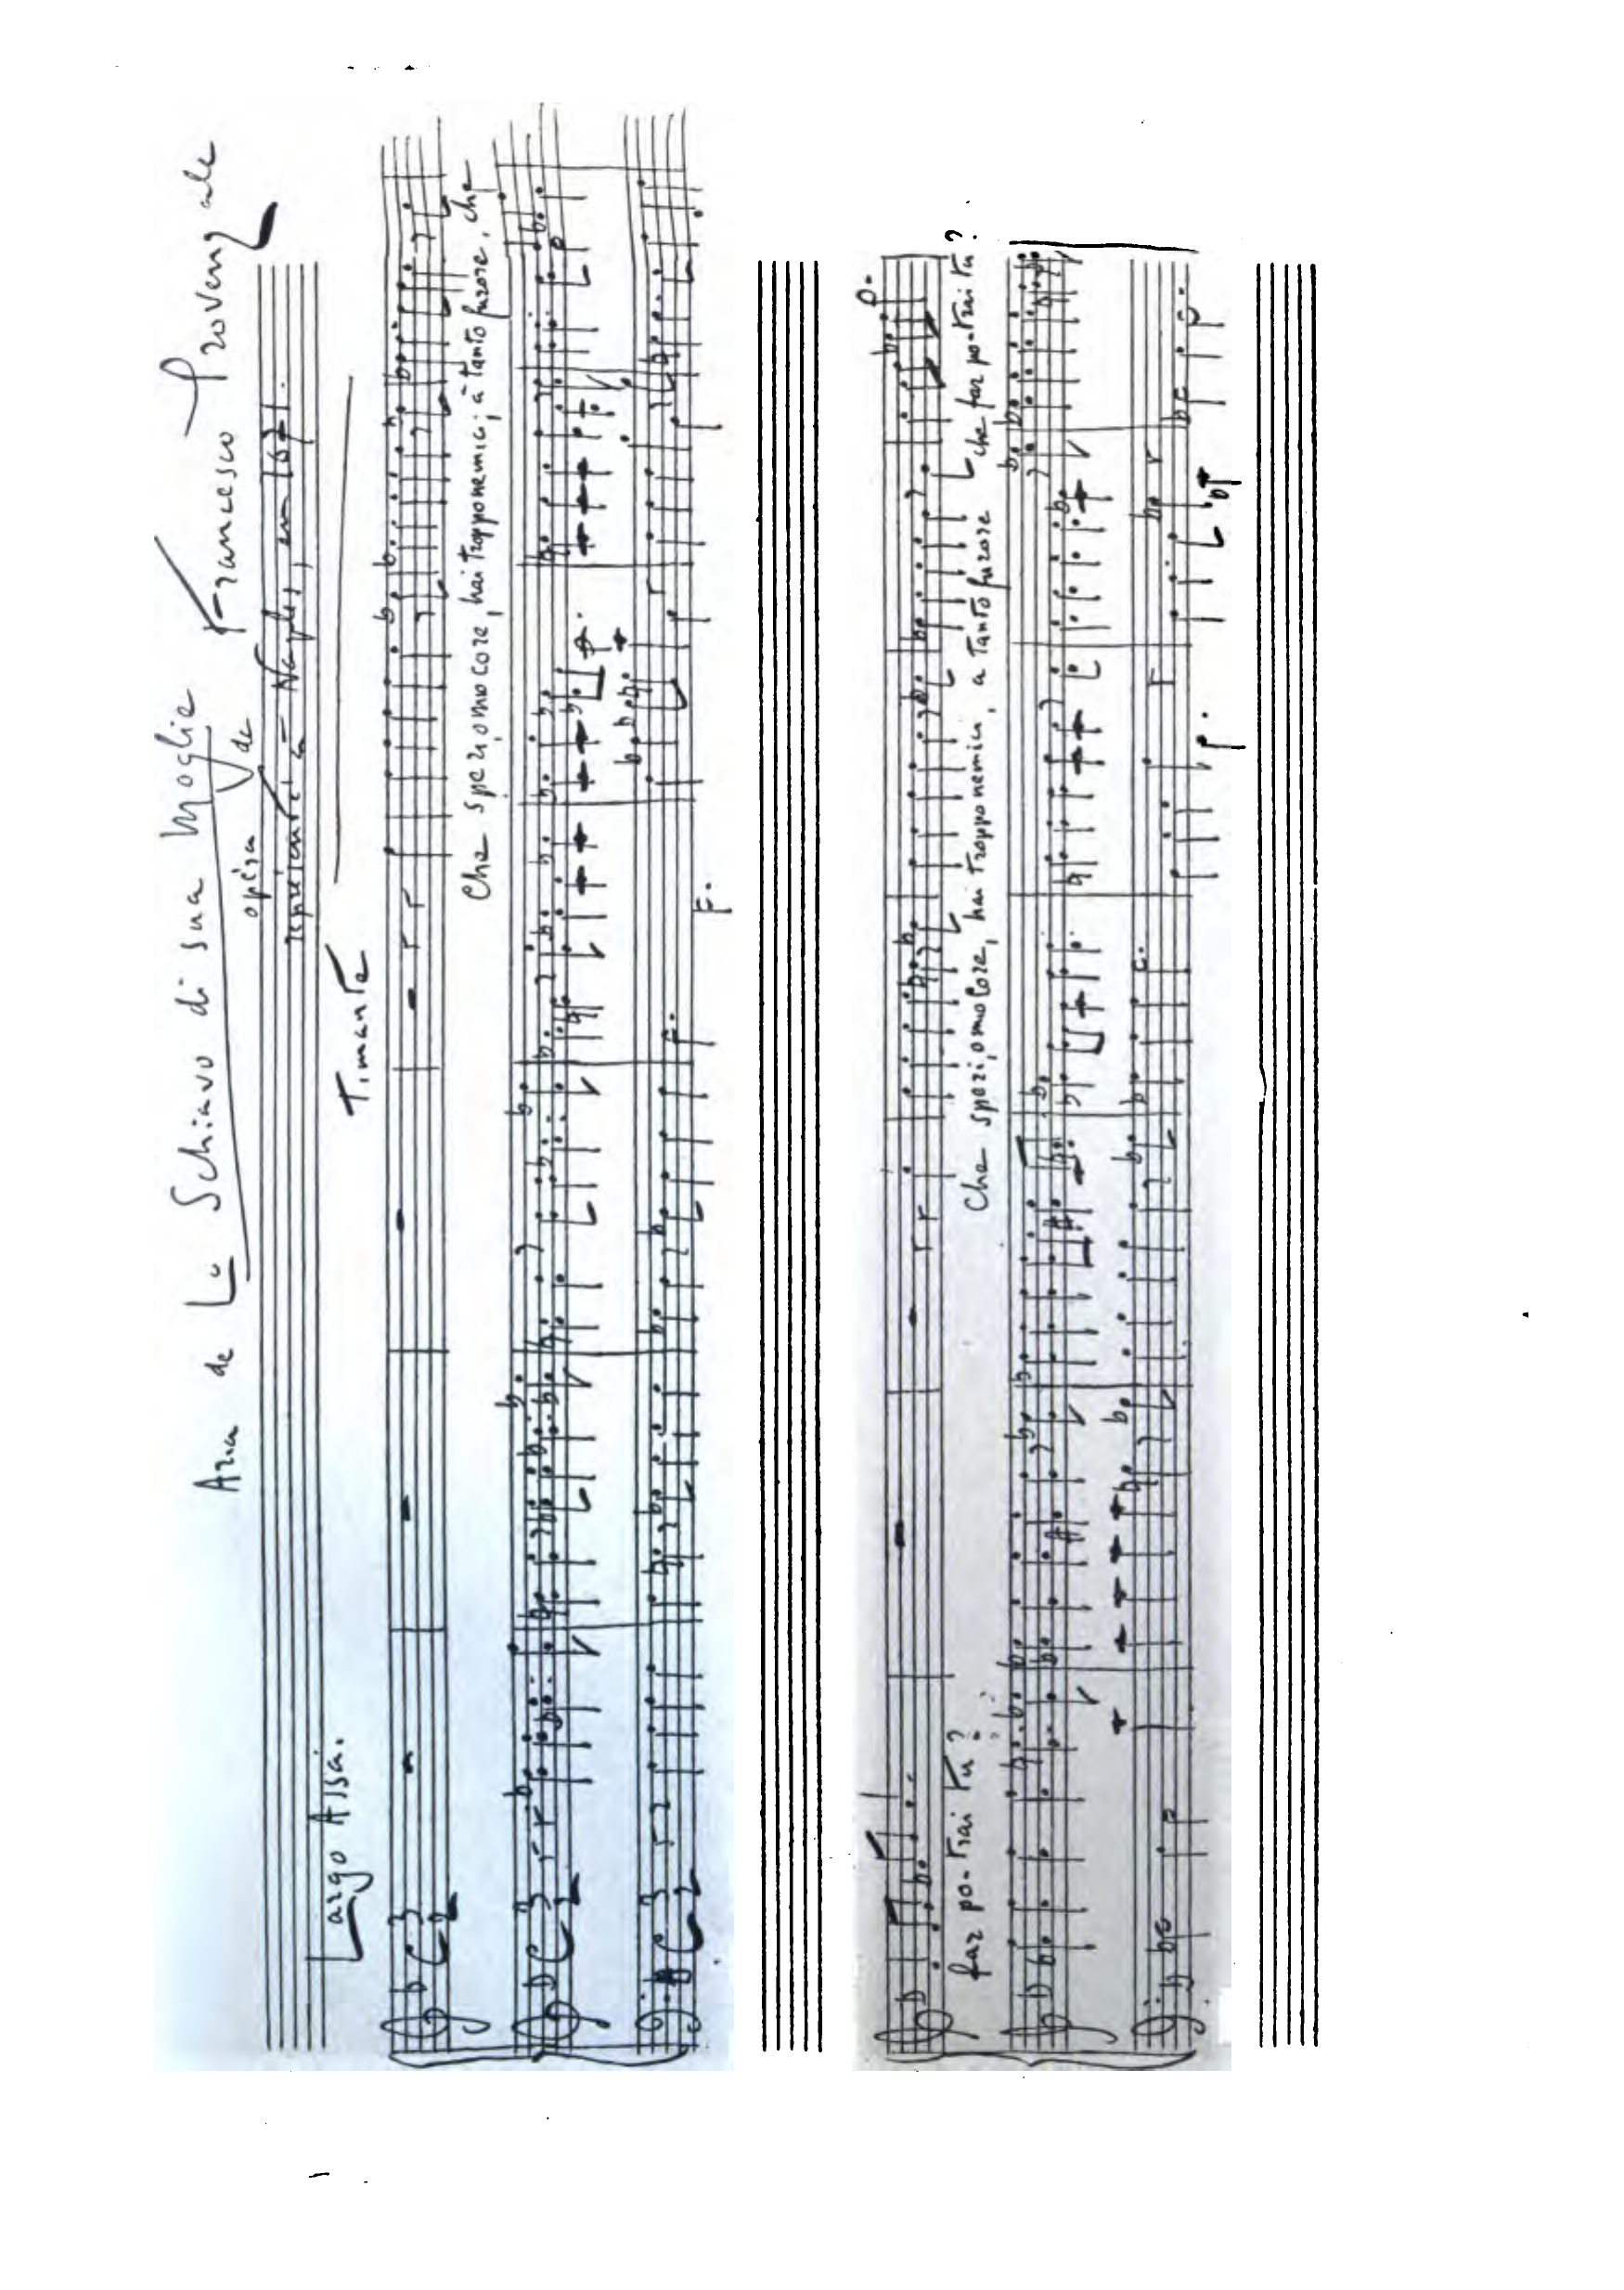 Aria de Lo Schiavo di sua moglie
opéra de Francesco Provenzale
représenté à Naples, en 1671.
Largo Assai.
Timante
Che speri, o mio core, hai troppo nemici, a tanto furore, che
far po-trai tu?
Che speri, o mio core, hai troppo nemici, a tanto furore che far po-trai tu?